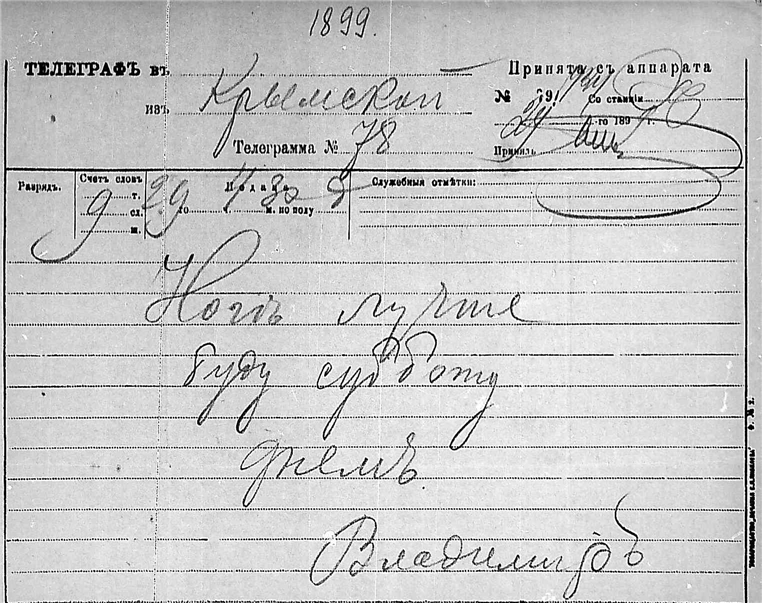 1899.
ТЕЛЕГРАФЪ въ
Принята съ аппарата
изъ Крымской
№ Со станціи
Телеграмма № 78
29 го 189 г.
Принялъ
Разрядъ.
Счетъ словъ
Подана
Служебныя отмѣтки:
9 т. сл. м.
29 го 4 ч. 30 м. по полу
Ногѣ лучше
буду субботу
днемъ
Владиміръ